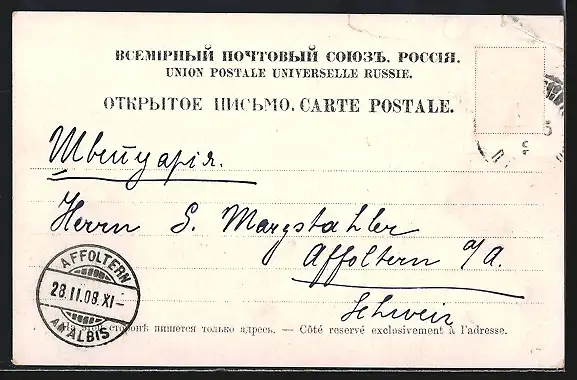 ВСЕМІРНЫЙ ПОЧТОВЫЙ СОЮЗЪ. РОССІЯ.
UNION POSTALE UNIVERSELLE RUSSIE.
ОТКРЫТОЕ ПИСЬМО. CARTE POSTALE.
Швейцарія.
Herrn S. Margstahler
Affoltern a/A.
Schweiz
AFFOLTERN
28.II.08.XI–
AM ALBIS
На этой сторонѣ пишется только адресъ. — Côté reservé exclusivement à l'adresse.